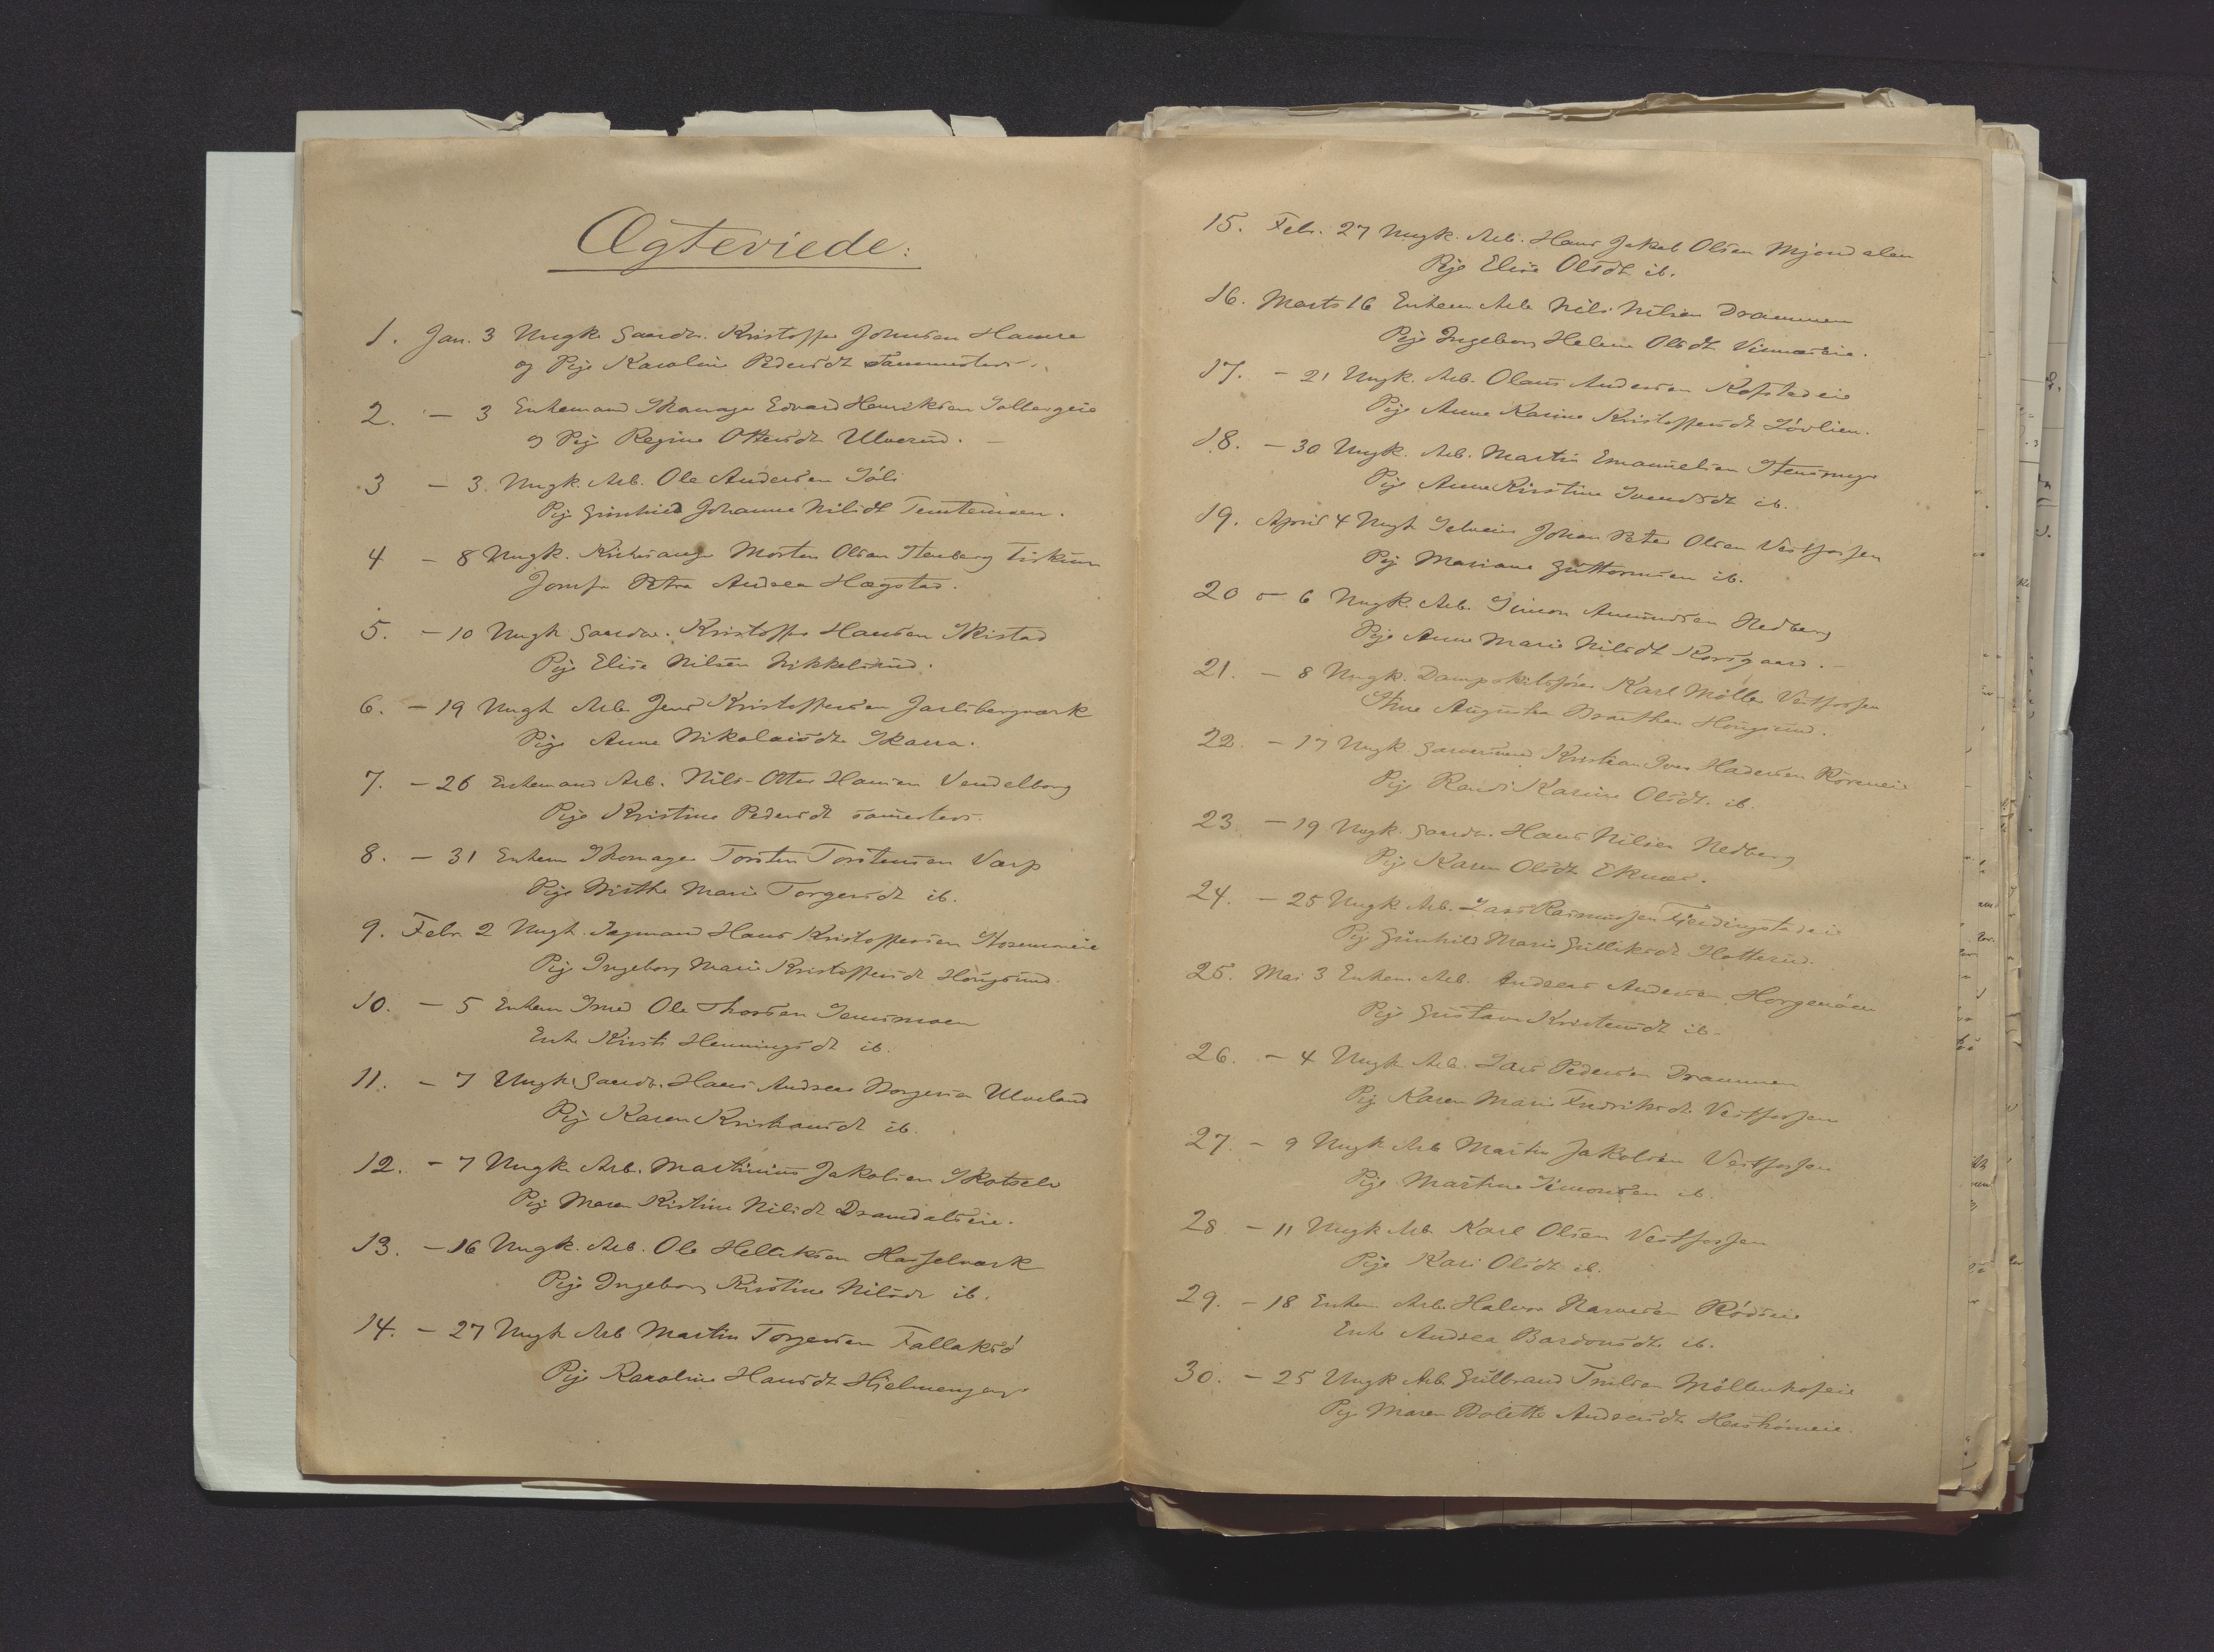 Ægteviede:
1. Jan. 3 Ungk. Gaardbr. Kristoffer Johnsen Hamre
og Pige Karoline Pedersdt sammesteds.
2. — 3 Enkemand Skomager Edvard Henriksen
og Pige Regine Ottersdt Ulverud. —
3 — 3. Ungk. Arb. Ole Andersen Sóli
Pige Johanne Nilsdt
4 — 8 Ungk. Kirkesanger Morten Olsen Stenberg Fiskum
Jomfr Petra Andrea Hægstad.
5. — 10 Ungk Gaardbr. Kristoffer Hansen Skistad
Pige Elise Nilsen Mikkelsrud.
6. — 19 Ungk Arb Jens Kristoffersen Jarlsbergværk
Pige Anne Nikolaisdt Skarra.
7. — 26 Enkemand Arb. Nils-Otter Hansen Vendelborg
Pige Kristine Pedersdt sammesteds.
8. — 31 Enkem Skomager Torsten Torstensen Varp
Pige Birthe Marie Torgersdt ib.
9. Febr 2 Ungk. Hans Kristoffersen
Pige Ingeborg Marie Kristoffersdt Hougsund.
10. — 5 Enkem Smed Ole Thorsen
Enke Kirsti Henningsdt ib.
11. — 7 Ungk Gaardbr. Hans Andreas Borgersen Ulveland
Pige Karen Kristiansdt ib.
12. — 7 Ungk Arb. Martinius Jakobsen Skotselv
Pige Maren Kistine Nilsdt
13. — 16 Ungk. Arb. Ole Helliksen Hasselværk
Pige Ingeborg Kirstine Nilsdt ib.
14. — 27 Ungk Arb Martin Torgersen Fallaksó
Pige Karoline Hansdt
15. Febr. 27 Ungk. Arb. Hans Jakob Olsen Mjøndalen
Pige Elise Olsdt ib.
16. Marts 16 Enkem Arb Nils Nilsen Drammen
Pige Ingeborg Helene Olsdt
17. — 21 Ungk. Arb. Olaus Andersen Kopstadeie
Pige Anne Karine Kristoffersdt Lóvlien.
18. — 30 Ungk. Arb. Martin Emanuelsen
Pige Anne Kirstine Svendsdt ib.
19. April 4 Ungk Johan Peter Olsen Vestfossen
Pige Mariane Guttormsen ib.
20 — 6 Ungk. Arb. Simon Amundsen Nedberg
Pige Anne Marie Nilsdt Korsgaard. —
21. — 8 Ungk. Dampskibsfører Karl Möller Vestfossen
Stine Augusta Braathen Hougsund.
22. — 17 Ungk. Kristian Iver Hadersen
Pige Randi Karine Olsdt. ib.
23 — 19 Ungk. Gaardbr. Hans Nilsen Nedberg
Pige Karen Olsdt Eknæs.
24. — 25 Ungk Arb. Lars Rasmussen Fjerdingstadeie
Pige Gunhild Marie Gulliksdt
25. Mai 3 Enkem Arb. Andreas Andersen Horgenóen
Pige Gustava Kristensdt ib.
26. — 4 Ungk Arb. Lars Pedersen Drammen
Pige Karen Marie Fredriksdt. Vestfossen
27. — 9 Ungk Arb Martin Jakobsen Vestfossen
Pige Martine Simonsen ib.
28 — 11 Ungk Arb Karl Olsen Vestfossen
Pige Kari Olsdt ib.
29. — 18 Enkem Arb. Halvor Narvesen
Enke Andrea Bardonsdt ib.
30. — 25 Ungk Arb Gulbrand Trulsen Möllenhofeie
Pige Maren Bolette Andersdt